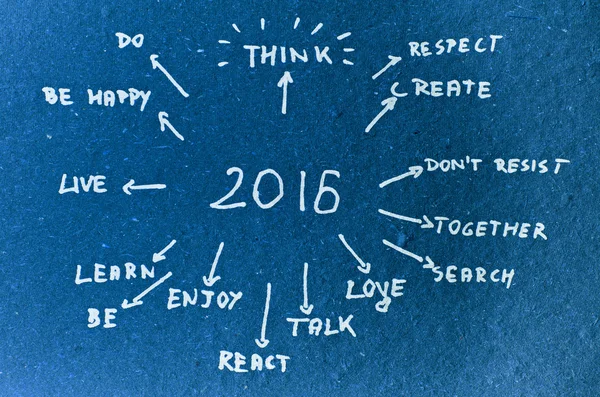 DO
THINK
RESPECT
BE HAPPY
CREATE
LIVE
2016
DON'T RESIST
TOGETHER
LEARN
SEARCH
BE
ENJOY
LOVE
TALK
REACT